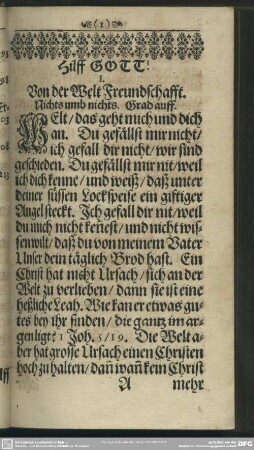 (1)
Hilff GOTT!
I.
Von der Welt Freundschafft.
Nichts umb nichts. Grad auff.
WElt/das geht mich und dich
an. Du gefällst mir nicht/
ich gefall dir nicht/wir sind
geschieden. Du gefällst mir nit/weil
ich dich kenne/und weiß/daß unter
deiner süssen Lockspeise ein gifftiger
Angel steckt. Ich gefall dir nit/weil
du mich nicht kenest/und nicht wis-
sen wilt/daß du von meinem Vater
Unser dein täglich Brod hast. Ein
Christ hat nicht Ursach/sich an der
Welt zu verlieben/dann sie ist eine
heßliche Leah. Wie kan er etwas gu-
tes bey ihr finden/die gantz im ar-
gen ligt? 1 Joh. 5/19. Die Welt a-
ber hat grosse Ursach einen Christen
hoch zu halten/dañ wañ kein Christ
A mehr
93
98
208
213
DFG